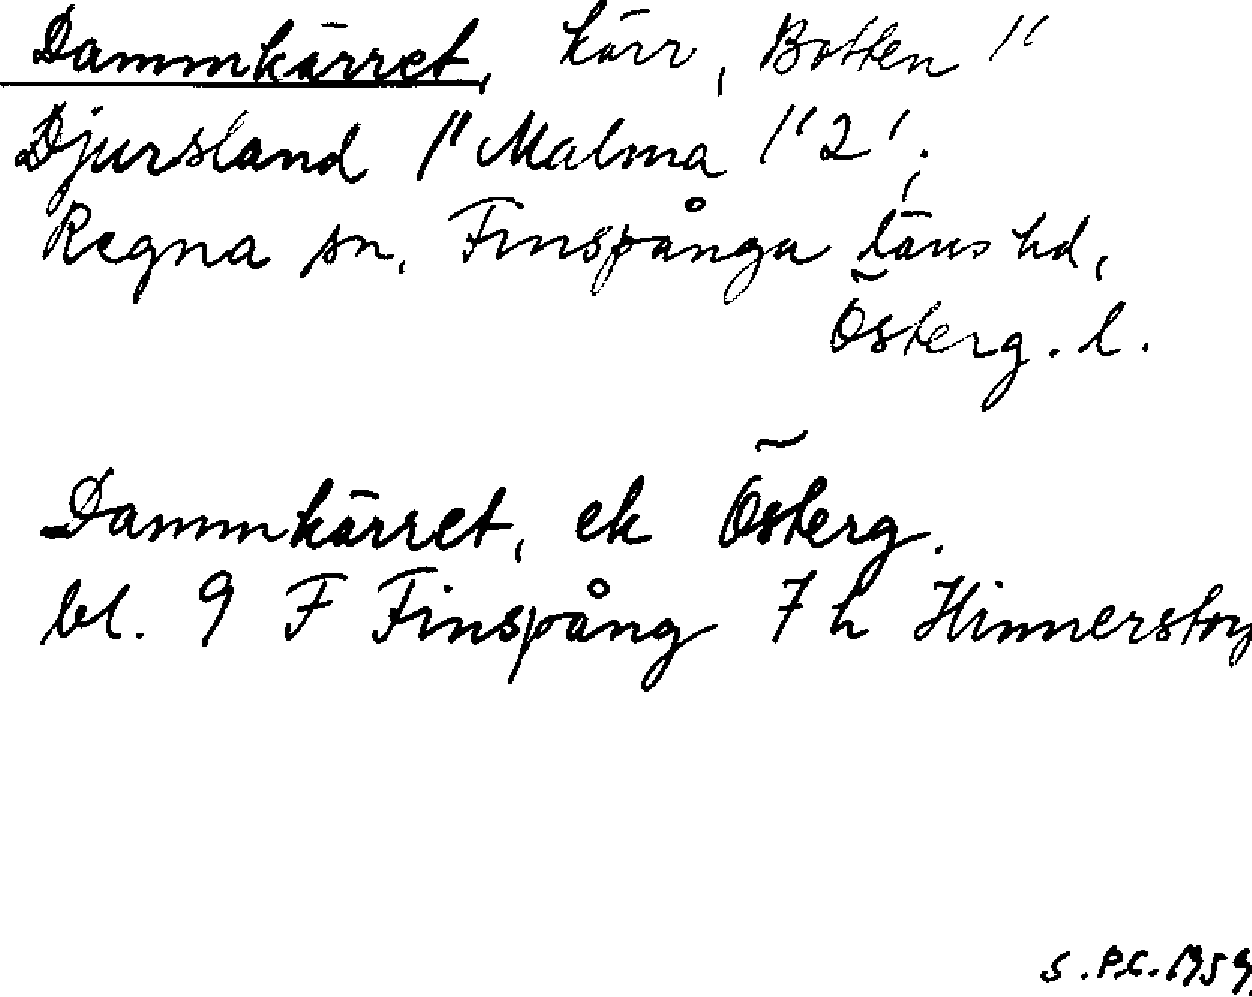 Dammkärret, kärr, Botten 1"
Djursland 1" Malma 1" 2';
Regna sn, Finspånga läns hd,
Österg. l.
Dammkärret, ek Österg.
bl. 9 F Finspång 7 h Hinnerstorp
S.P.C. 1959.